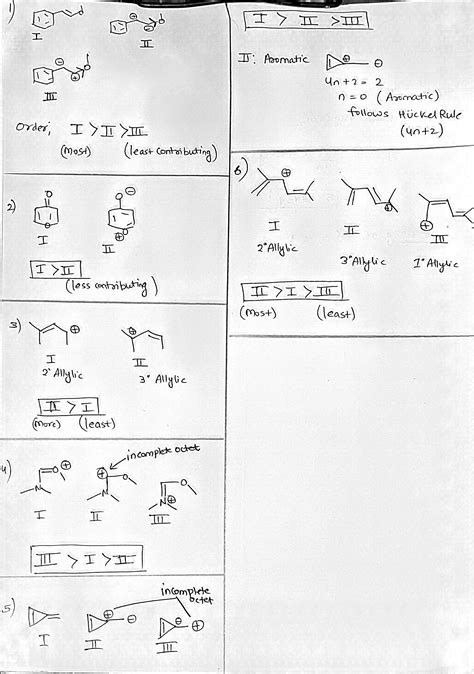 1)
I
II
III
Order, I > II > III
(most) (least contributing)
2)
I
II
I > II
(less contributing)
3)
I
2° Allylic
II
3° Allylic
II > I
(more) (least)
4)
incomplete octet
I
II
III
III > I > II
5)
incomplete octet
I
II
III
I > II > III
II: Aromatic
4n+2 = 2
n=0 (Aromatic)
follows Hückel Rule
(4n+2)
6)
I
2° Allylic
II
3° Allylic
III
1° Allylic
II > I > III
(Most) (least)